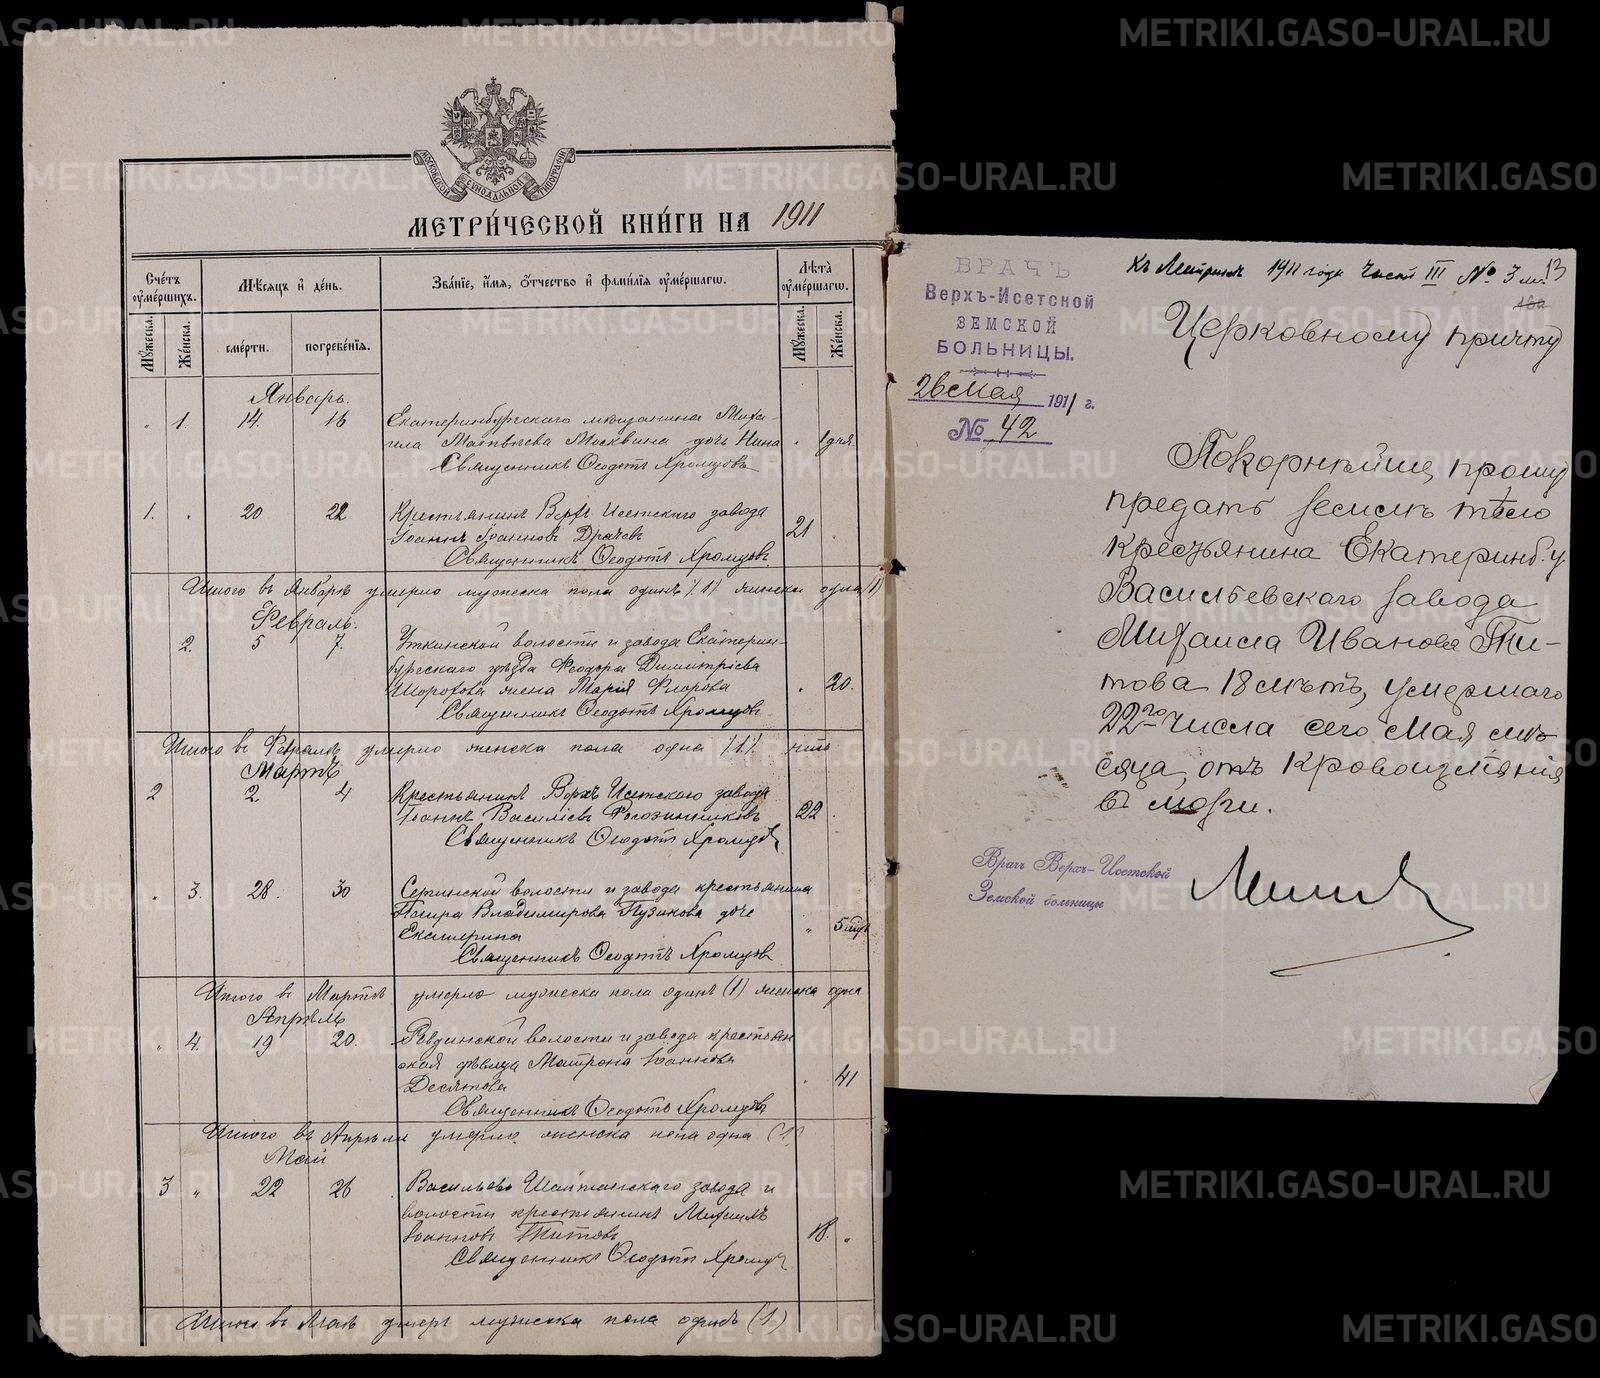 МОСКОВСКОЙ СѴНОДАЛЬНОЙ ТИПОГРАФІИ
МЕТРИ́ЧЕСКОЙ КНИ́ГИ НА 1911
Сче́тъ оу҆ме́ршихъ.
Мѣ́сяцъ и҆ де́нь.
Зва́нїе, и҆́мя, ѻ҆́тчество и҆ фами́лїя оу҆ме́ршагѡ.
Лѣ́та оу҆ме́ршагѡ.
Мꙋ́жеска.
Же́нска.
сме́рти.
погребе́нїя.
Мꙋ́жеска.
Же́нска.
Январь.
„ 1. 14. 16 Екатеринбургскаго мѣщанина Миха-
ила Матвѣева Москвина дочь Нина „ 1 дня.
Священникъ Ѳеодотъ Хромцовъ
1. „ 20 22 Крестьянинъ Верхъ Исетскаго завода
Іоаннъ Іоанновъ Драчевъ 21
Священникъ Ѳеодотъ Хромцовъ
Итого въ Январѣ умерло мужеска пола одинъ (1) женска одна (1)
Февраль.
2. 5 7. Уткинской волости и завода Екатерин-
бургскаго уѣзда Ѳеодора Димитріева
жена Марія „ 20.
Священникъ Ѳеодотъ Хромцовъ
Итого въ Февралѣ умерло женска пола одна (1)
Мартъ
2 2. 4 Крестьянинъ Верхъ Исетскаго завода
Іоаннъ Василіевъ Рогозинниковъ 22
Священникъ Ѳеодотъ Хромцовъ
„ 3. 28. 30 волости и завода крестьянина
Владимирова Пузикова дочь
Екатерина „ 5 мѣс
Священникъ Ѳеодотъ Хромцовъ
Итого въ Мартѣ умерло мужеска пола одинъ (1) женска одна
Апрѣль
„ 4. 19 20. Ревдинской волости и завода крестьян
ская дѣвица Матрона Іоаннова
Десятова „ 41
Священникъ Ѳеодотъ Хромцовъ
Итого въ Апрѣлѣ умерло женска пола одна (1)
Май
3 „ 22 26 Васильево Шайтанскаго завода и
волости крестьянинъ Михаилъ
Іоанновъ Титовъ 18. „
Священникъ Ѳеодотъ Хромцовъ
Итого въ Маѣ умеръ мужеска пола одинъ (1)
Къ Метрикѣ 1911 года Части III № 3 м. 13
18а
ВРАЧЪ
Верхъ-Исетской
ЗЕМСКОЙ
БОЛЬНИЦЫ.
26 Мая 1911 г.
№ 42
Церковному причту
Покорнѣйше прошу
предать землѣ тѣло
крестьянина Екатеринб. у.
Васильевскаго завода
Михаила Иванова Ти-
това 18 лѣтъ, умершаго
22го числа сего Мая мѣ
сяца, отъ кровоизліянія
въ мозги.
Врачъ Верхъ-Исетской
Земской больницы
METRIKI.GASO-URAL.RU